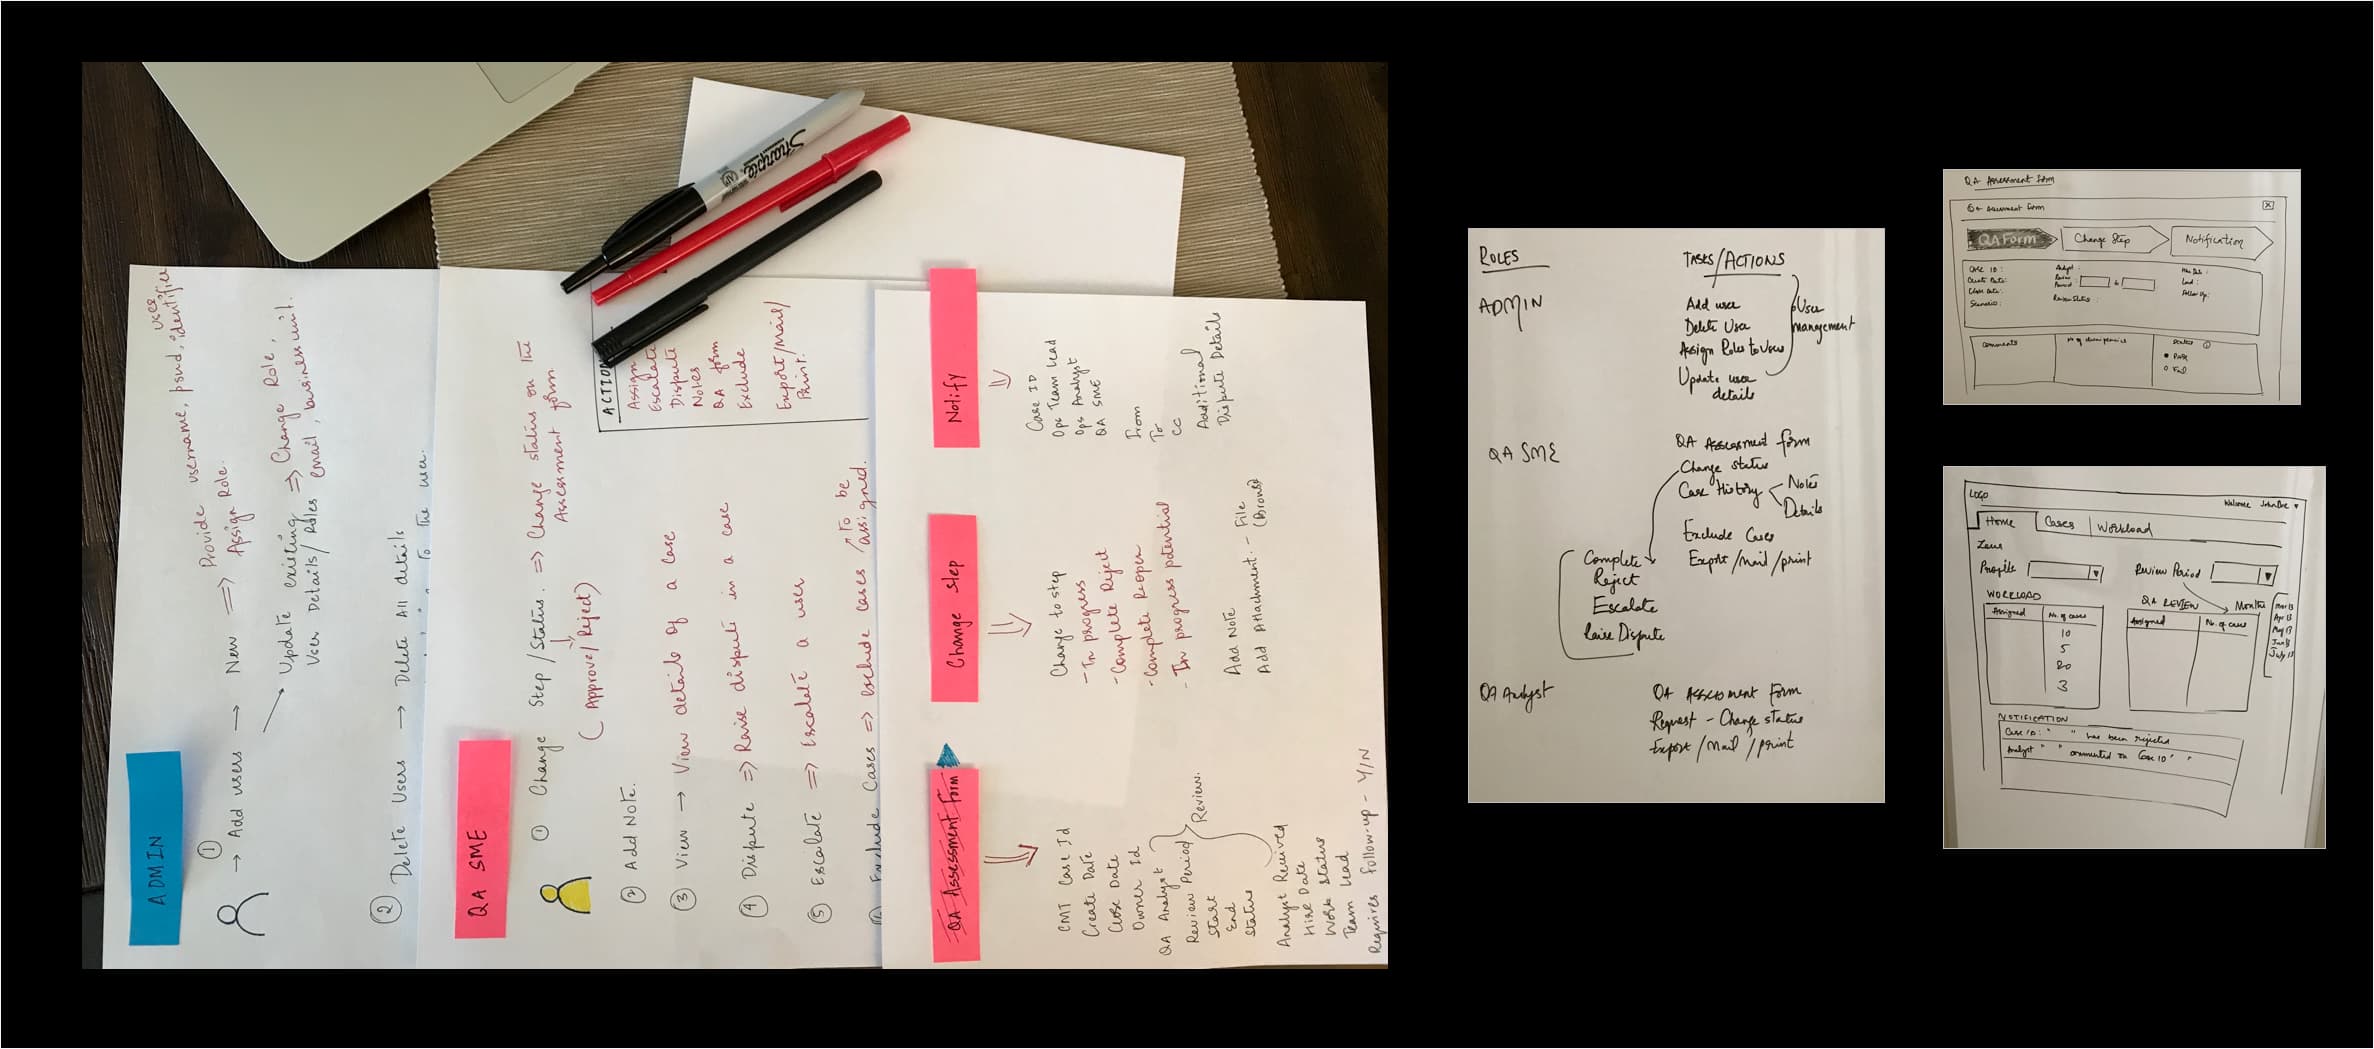 ADMIN
① → Add users → New ⇒ Provide username, pswd, user identifier
Assign Role.
→ Update existing ⇒ Change Role,
User Details/Roles email, business unit.
② Delete Users → Delete All details
to the user.
QA SME
① Change Step/Status. ⇒ Change status on the
Assessment form
(Approve/Reject)
② Add Note.
③ View → View details of a case
④ Dispute ⇒ Raise dispute in a case
⑤ Escalate ⇒ Escalate a user
Exclude Cases ⇒ exclude cases to be
assigned.
ACTION
Assign
Escalate
Dispute
Notes
QA form
Exclude
Export/Mail/
Print.
Sharpie
QA Assessment Form
CMT Case Id
Create Date
Close Date
Owner Id
QA Analyst
Review Period
Start
End
Status
Review.
Analyst Received
Hire Date
Work Status
Team Lead
Requires Follow-up - Y/N
Change Step
Change to step
- In progress
- Complete Reject
- Complete Reopen
- In progress potential
Add Note
Add Attachment. - File
(Browse)
Notify
Case ID
Ops Team Lead
Ops Analyst
QA SME
From
To
CC
Additional
Dispute Details
ROLES
TASKS/ACTIONS
ADMIN
Add user
Delete User
Assign Roles to Users
Update user
details
User
management
QA SME
QA Assessment form
Change status
Case History
Notes
Details
Exclude Cases
Export/mail/print
Complete
Reject
Escalate
Raise Dispute
QA Analyst
QA Assessment Form
Request - Change status
Export/mail/print
QA Assessment Form
Assessment Form
X
QA Form
Change Step
Notification
Case ID:
Create Date:
Close Date:
Scenario:
Analyst:
Review
Period
to
Review Status:
Hire Date:
Lead:
Follow Up:
Comments
Status
Pass
Fail
LOGO
Welcome JohnDoe
Home
Cases
Workload
Profile
Review Period
WORKLOAD
Assigned
No. of cases
10
5
20
3
QA REVIEW
Assigned
No. of cases
Months
Mar 13
Apr 13
May 13
Jun 13
July 13
NOTIFICATION
Case ID: " " has been rejected
Analyst " " commented on Case ID " "